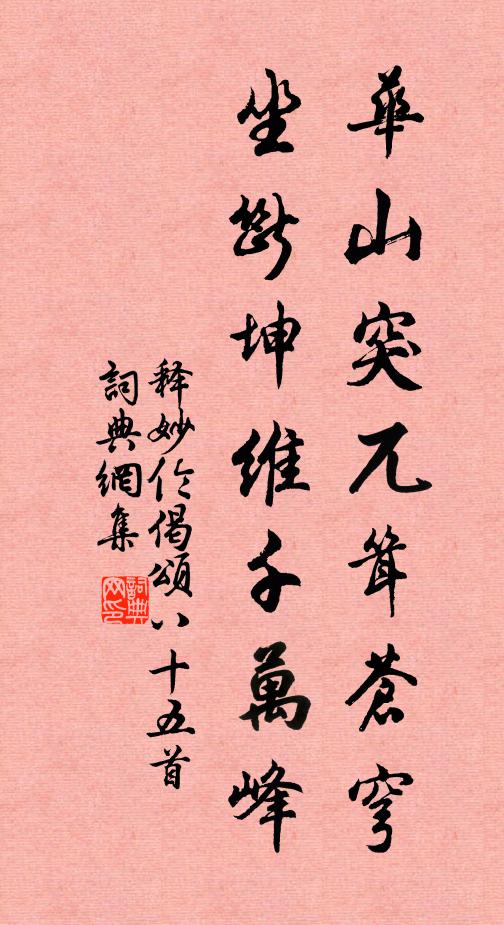 華山突兀耸蒼穹
坐斷坤維千萬峰
释妙伦偈頌八十五首
詞典網集
詞典网印